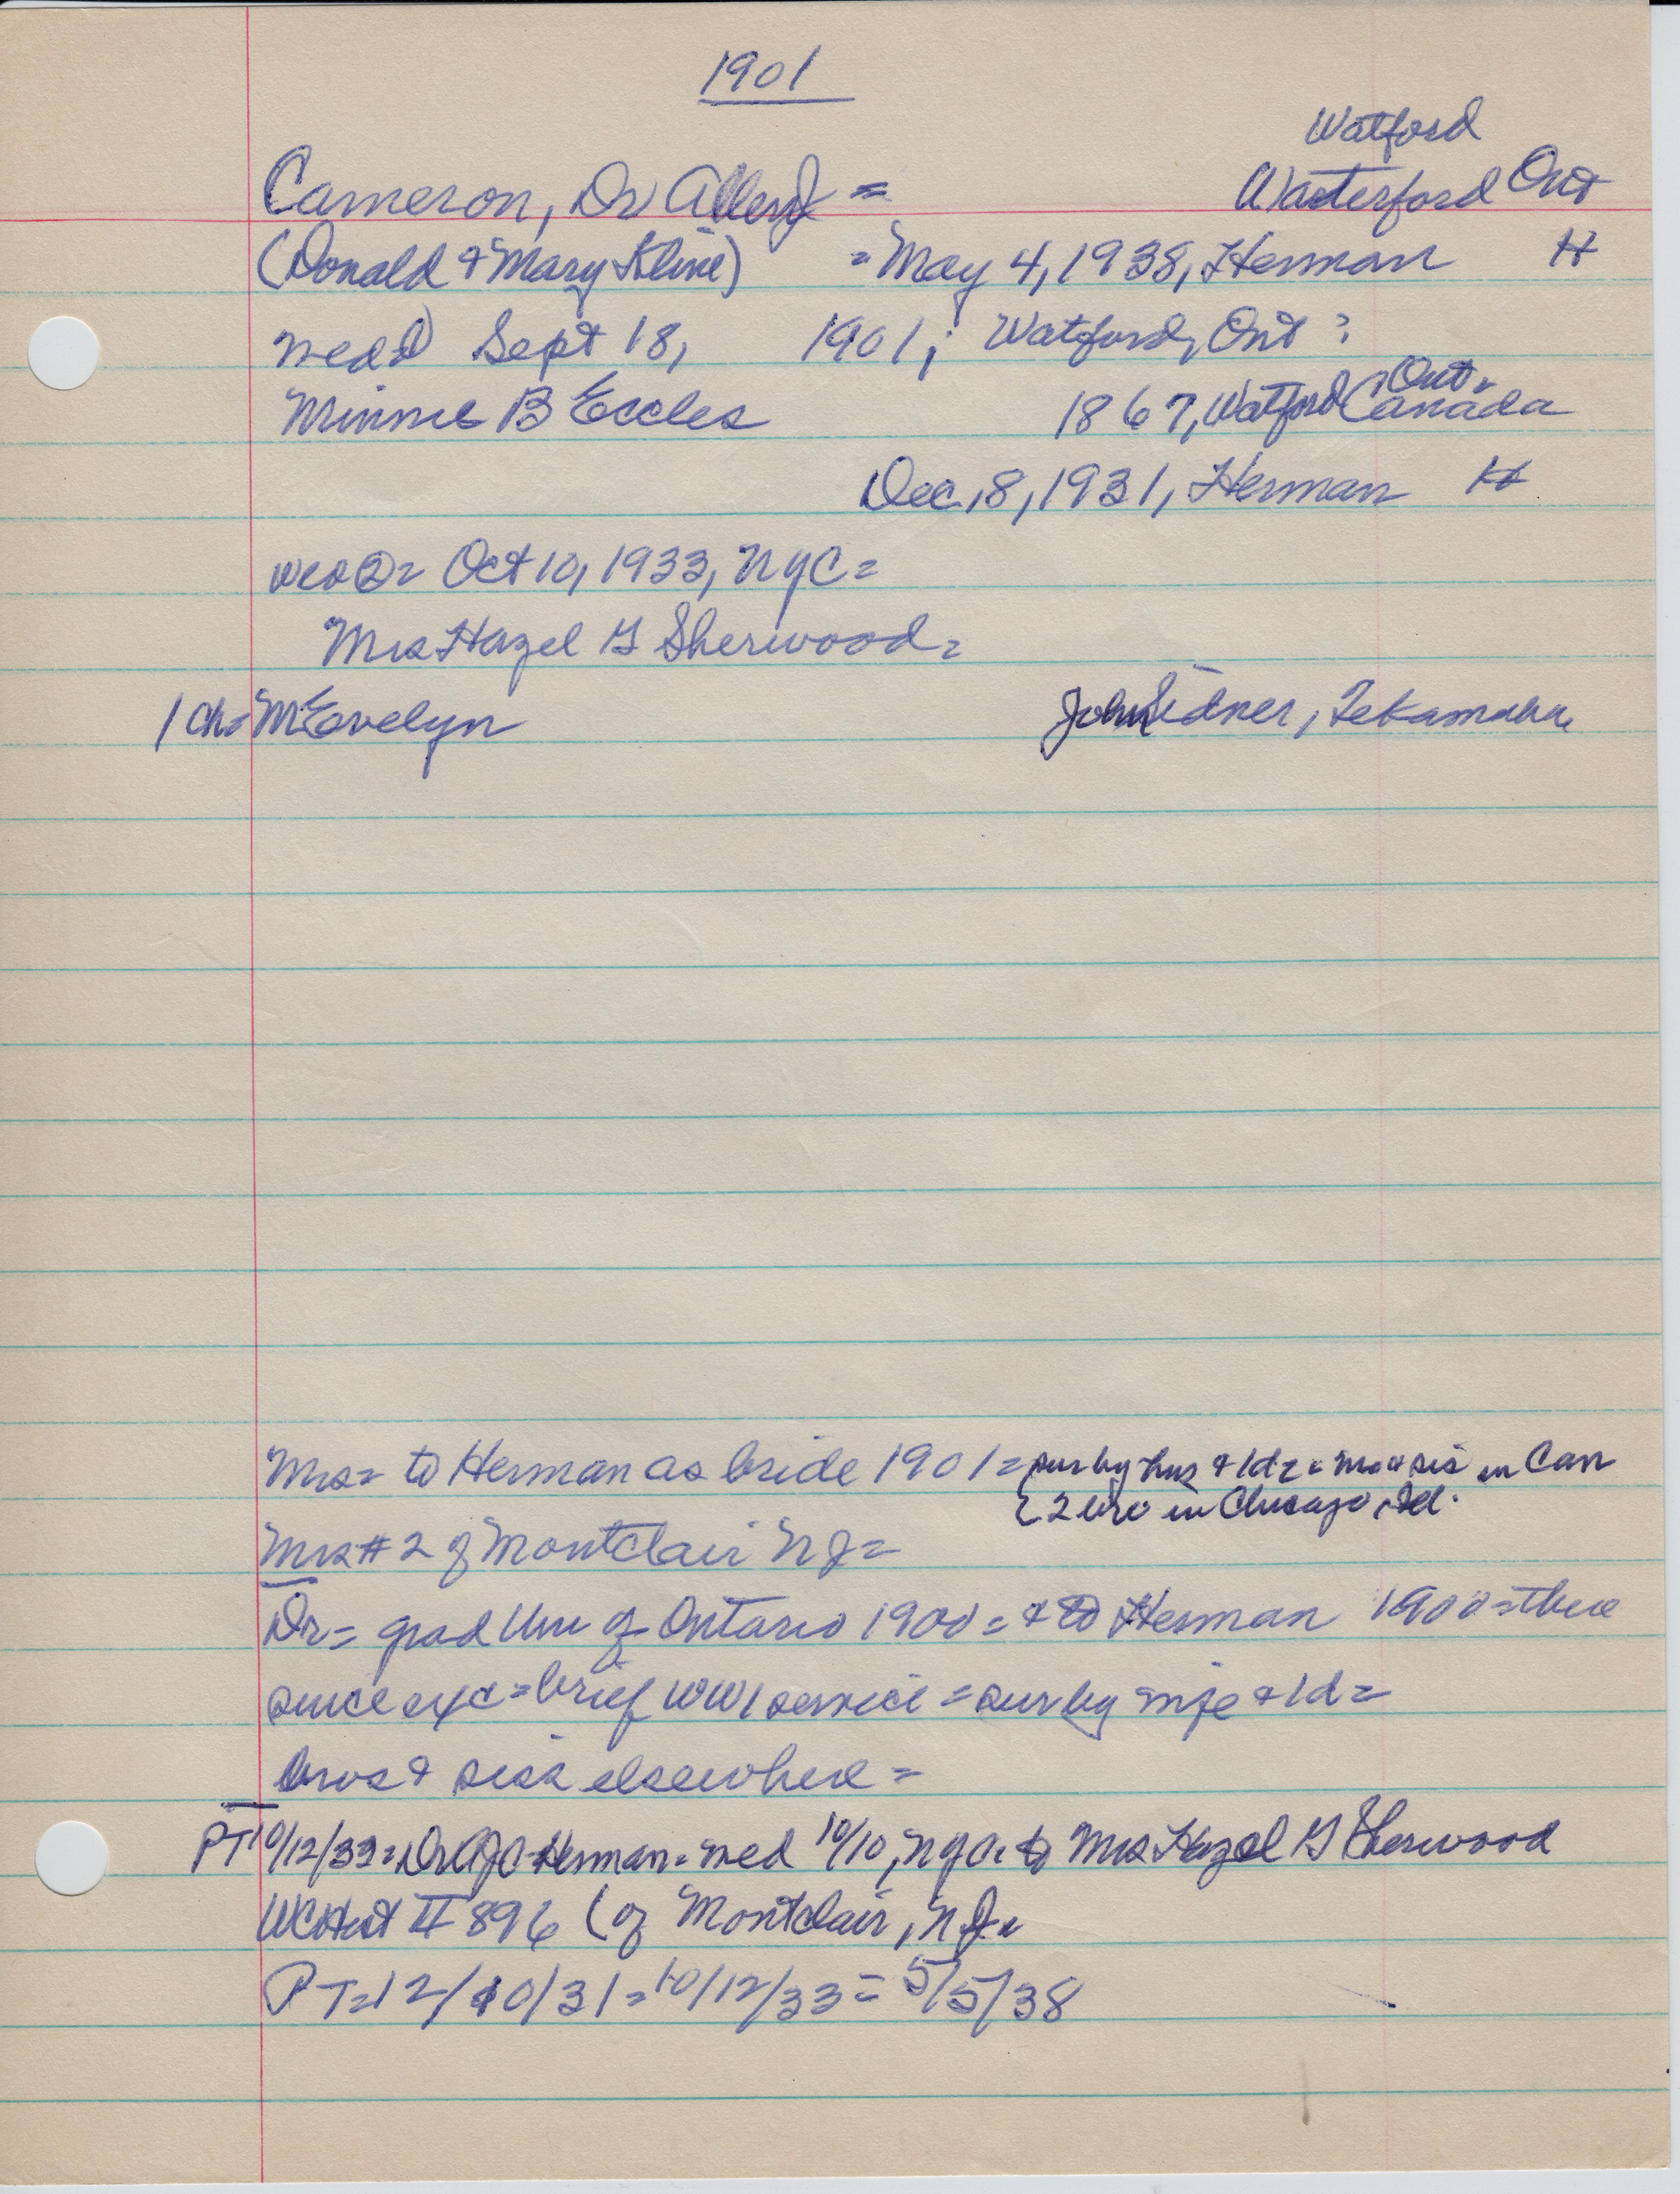 1901
Watford
Cameron, Dr Allen J = Waterford Ont
(Donald & Mary Kline) = May 4, 1938, Herman H
wed ① Sept 18, 1901; Watford, Ont :
Minnie B Eccles 1867, Watford Ont. Canada
Dec, 8, 1931, Herman H
wed ② = Oct 10, 1933, NYC =
Mrs Hazel G Sherwood =
1 ch = M Evelyn John Sidner, Tekamah
Mrs = to Herman as bride 1901 = sur by hus & 1d = & mo & sis in Can
& 2 bro in Chicago, Ill.
Mrs # 2 of Montclair NJ =
Dr = grad Uni of Ontario 1900 = & to Herman 1900 = there
since exc = brief WW1 service = sur by wife & 1d =
bros & siss elsewhere =
PT 10/12/33 = Dr AJC Herman = wed 10/10, NYC to Mrs Hazel G Sherwood
WCHist II 896 (of Montclair, NJ =
PT = 12/10/31 = 10/12/33 = 5/5/38